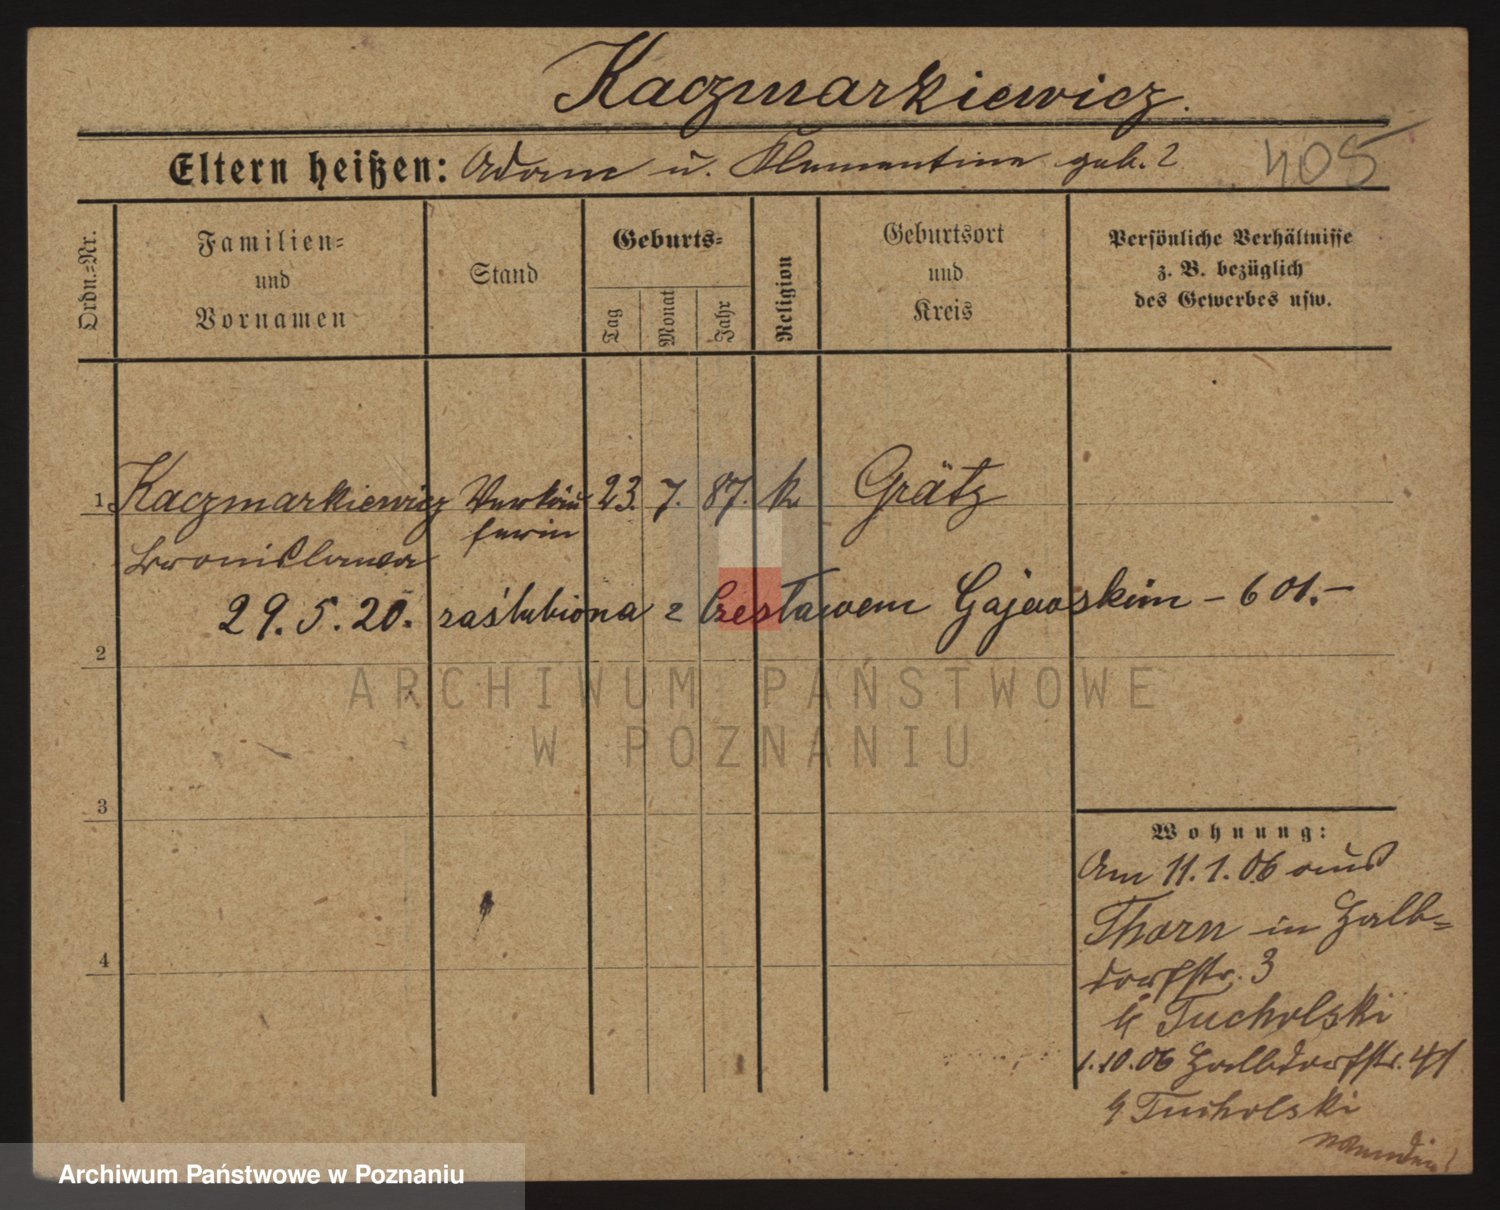 Kaczmarkiewicz.
Eltern heißen: Adam u. Klementine geb. ?
405
Ordn.=Nr.
Familien=
und
Vornamen
Stand
Geburts=
Tag
Monat
Jahr
Religion
Geburtsort
und
Kreis
Persönliche Verhältnisse
z. B. bezüglich
des Gewerbes usw.
1 Kaczmarkiewicz Verkäu 23. 7. 87. k. Grätz
Bronislawa ferin
29. 5. 20. zaślubiona z Czesławem Gajewskim – 601.–
2
ARCHIWUM PAŃSTWOWE
W POZNANIU
3
4
Wohnung:
Am 11.1.06 aus
Thorn in Halb=
dorfstr. 3
b/ Tucholski
1.10.06 Halbdorfstr. 41
b/ Tucholski
Archiwum Państwowe w Poznaniu